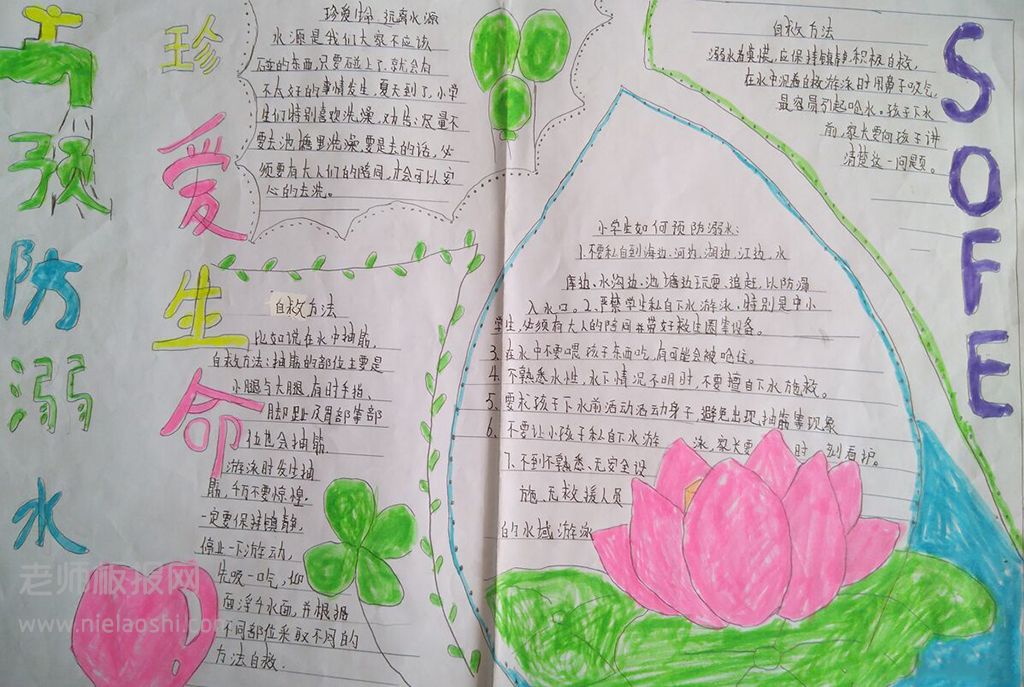 预防溺水
珍爱生命
珍爱生命 远离水源
水源是我们大家不应该
碰的东西,只要碰上了,就会有
不太好的事情发生,夏天到了,小学
生们特别喜欢洗澡,劝告:尽量不
要去池塘里洗澡,要是去的话,必
须要有大人们的陪同,才会可以安
心的去洗。
自救方法
溺水者莫慌,应保持镇静,积极自救,
在水中泥遇自救游泳时用鼻子吸气,
最容易引起呛水。孩子下水
前,家长要向孩子讲
清楚这一问题。
SOFE
自救方法
比如说在水中抽筋,
自救方法:抽筋的部位主要是
小腿与大腿,有时手指、
脚趾及胃部等部
位也会抽筋。
游泳时发生抽
筋,千万不要惊惶,
一定要保持镇静,
停止一下游动,
先吸一口气,仰
面浮于水面,并根据
不同部位采取不同的
方法自救.
小学生如何预防溺水:
1.不要私自到海边、河边、湖边、江边、水
库边、水沟边、池塘边玩耍、追赶,以防溺
入水口。2、严禁学生私自下水游泳,特别是中小
学生,必须有大人的陪同并带好救生圈等设备。
3、在水中不要喂孩子东西吃,有可能会被呛住。
4、不熟悉水性,水下情况不明时,不要擅自下水施救。
5、要求孩子下水前活动活动身子,避免出现抽筋等现象
6、不要让小孩子私自下水游泳,家长要时刻看护。
7、不到不熟悉、无安全设
施、无救援人员
的水域游泳
老师板报网
www.nielaoshi.com